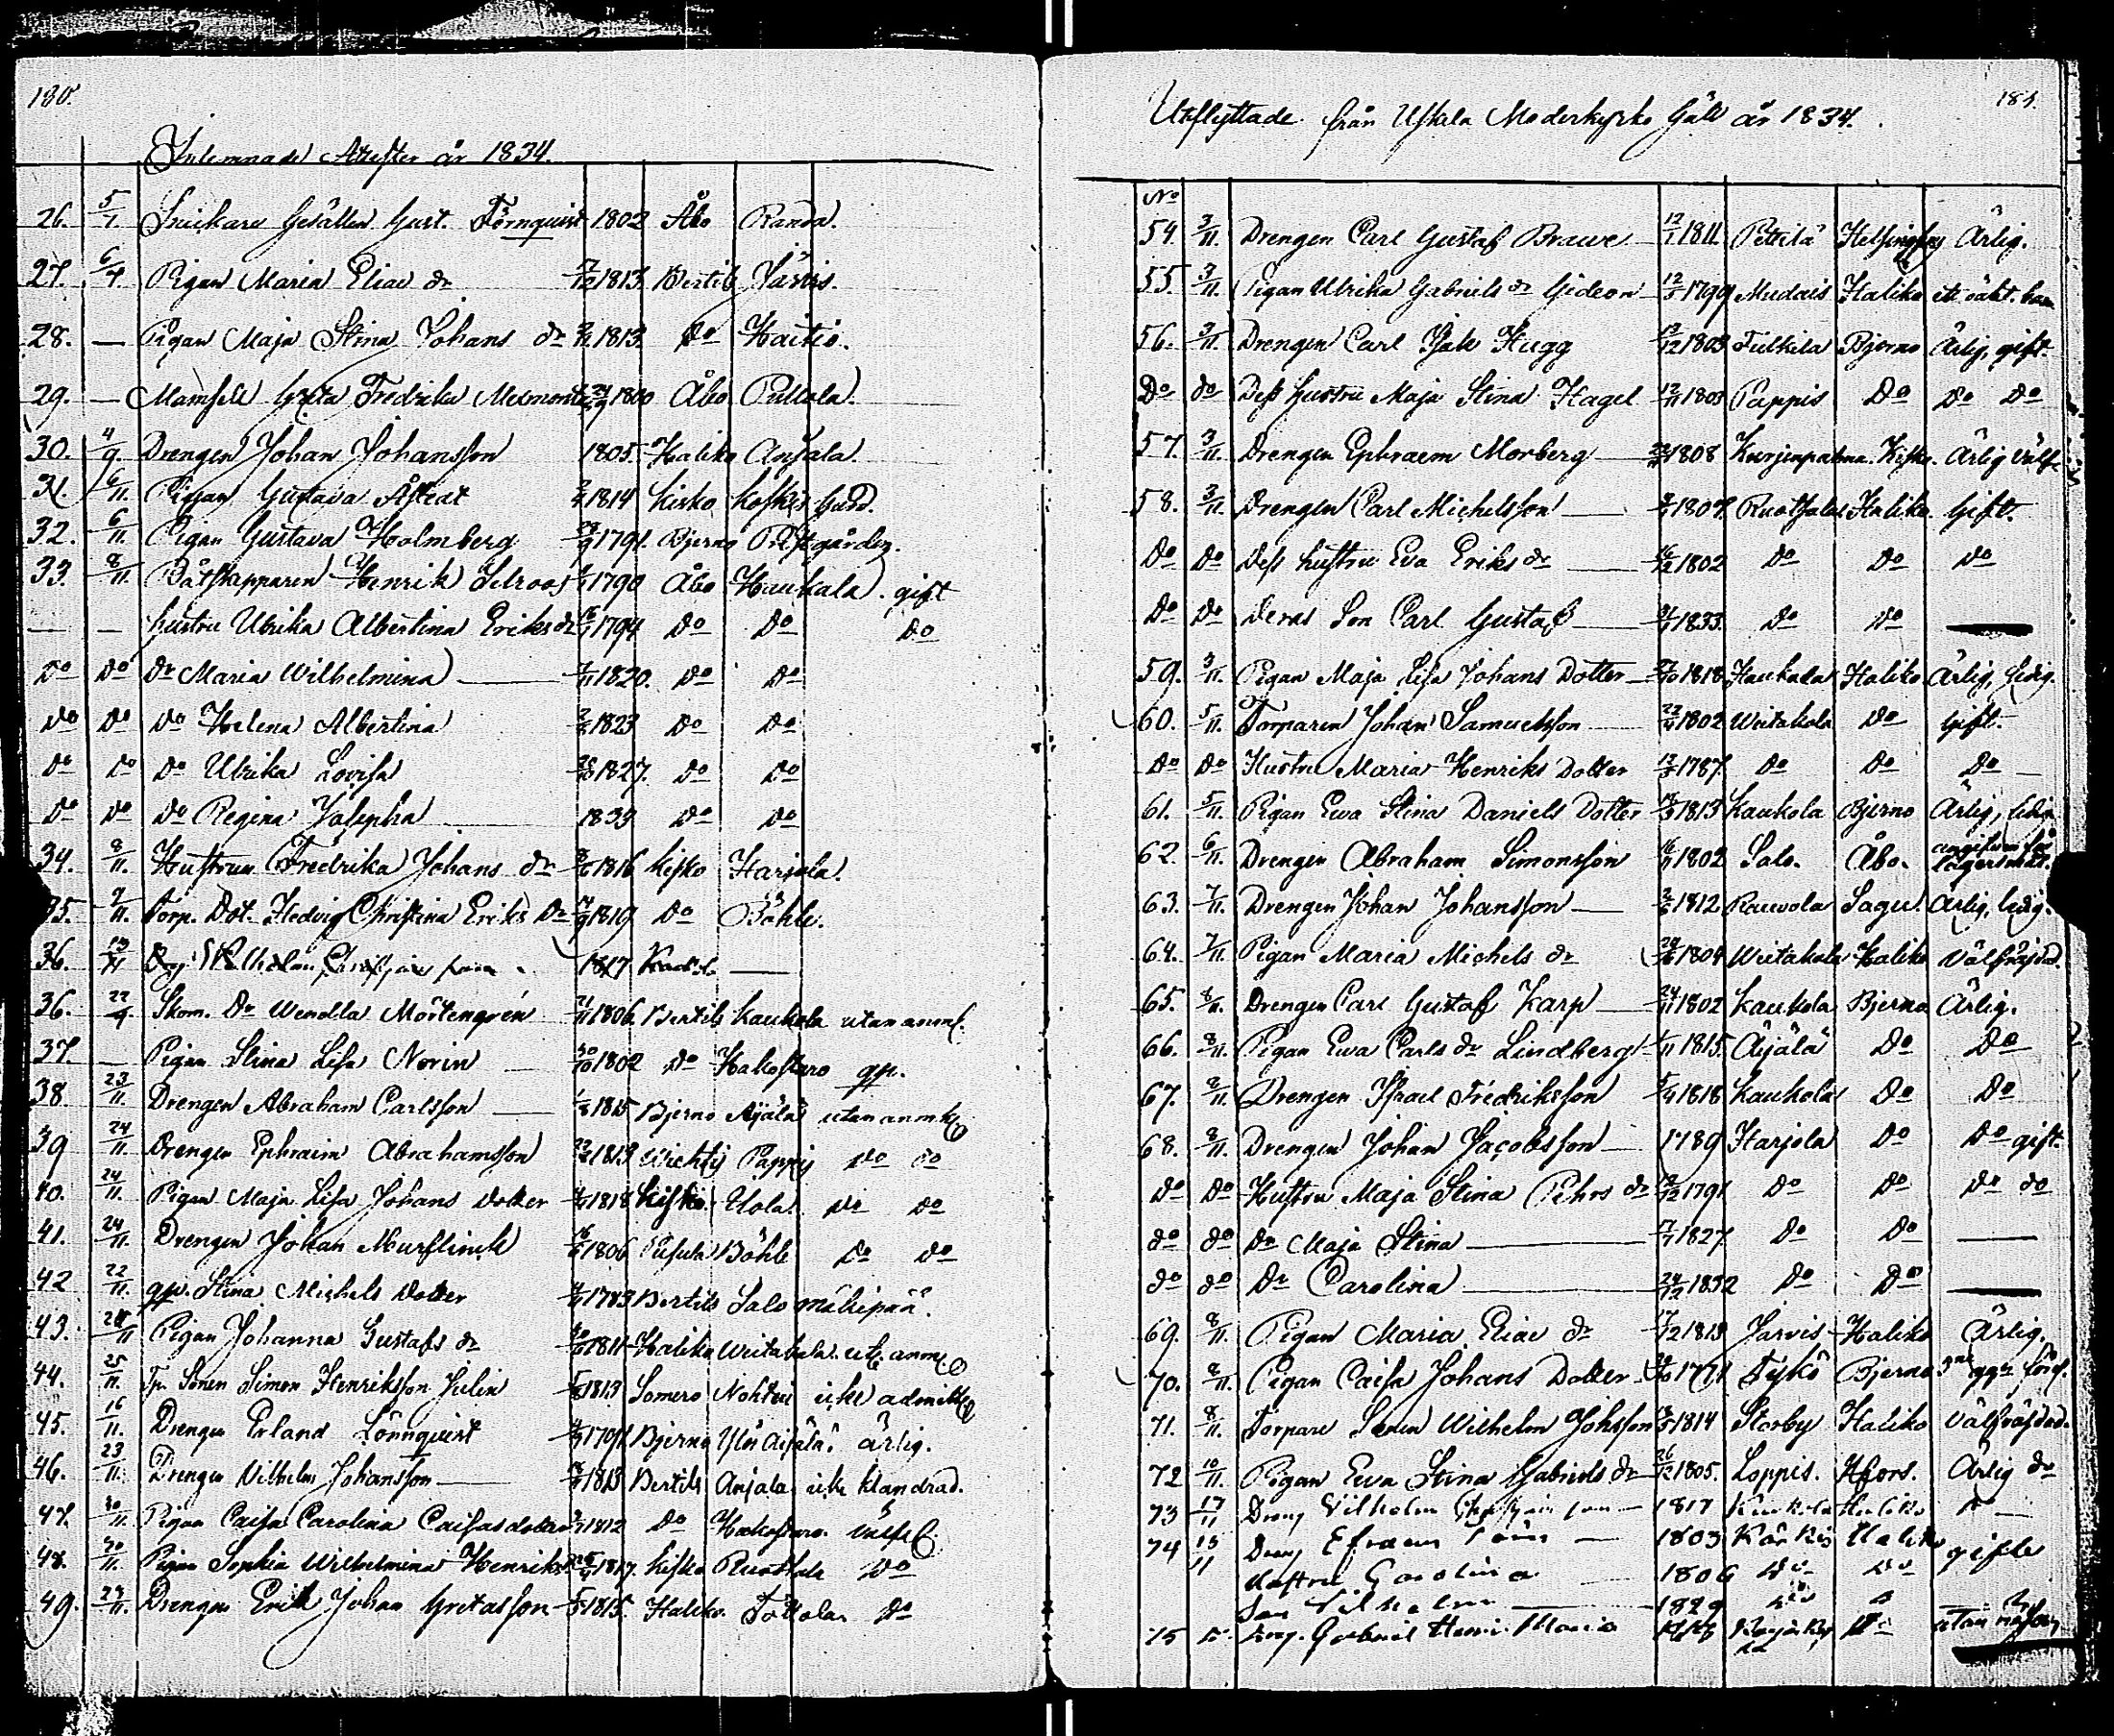 180.
Inlemnade Attester år 1834.
26. 5/7. Snickare Gesällen Gust. Törnquist 1802 Åbo Randa.
27. 6/7. Pigan Maria Eliae dr 7/12 1813. Bertils Järvis.
28. — Pigan Maja Stina Johans dr 1813. Do Haitio.
29. — Mamsell Greta Fredrika 1800 Åbo Pullola.
30. 4/9. Drengen Johan Johansson 1805. Haliko Anjala.
31. 6/11. Pigan Gustava Åstedt 1814 Kisko Koskis Gård.
32. 6/11. Pigan Gustava Holmberg 1791. Bjerno Prestgården.
33. 8/11. Båtskepparen Henrik Selroos 1790 Åbo Haukala. gift
— — hustru Ulrika Albertina Eriks dr 1794 Do Do Do
Do Do Dr Maria Wilhelmina — 1820. Do Do
Do Do Do Helena Albertina 1823 Do Do
Do Do Do Ulrika Lovisa 1827. Do Do
Do Do Do Regina Josepha 1833 Do Do
34. 8/11. Hustrun Fredrika Johans dr 1816 Kisko Harjola.
35. 9/11. Torp. Dot. Hedvig Christina Eriks Dr 1819 Do Böhle.
36. 1817
36. 22/9. Skom. Dr Wendla Mörtengrén 21/11 1806. Bertils Kaukola utan anm.
37. — Pigan Stina Lisa Norin 30/10 1802 Do Hakostaro qp.
38. 23/11. Drengen Abraham Carlsson — 1815 Bjerno Äijälä utan anmk
39 24/11. Drengen Ephraim Abrahamsson 1813 Wichtis Pappis Do Do
40. 24/11. Pigan Maja Lisa Johans Dotter 1818 Kisko. Ylola. Do Do
41. 24/11. Drengen Johan Murflinck 1806 Pusula Böhle Do Do
42 22/11. qp. Stina Michels Dotter 1783 Bertils Salo mälipää.
43. 24/11 Pigan Johanna Gustafs dr 1811 Haliko Wiitakola. ut. anm
44. 25/11. Tp. Sonen Simon Henriksson Julin 1813 Somero icke admitt
45. 16/11. Drengen Erland Lönnquist 1791. Bjerno Ylön Äijälä ärlig.
46. 23/11. Drengen Vilhelm Johansson — 1813 Bertils Anjala icke klandrad.
47. 30/11. Pigan Caisa Carolina Caisasdotter 1812 Do Hakostaro.
48. 30/11. Pigan Sophia Wilhelmina Henriks 1817. Kisko Ruotsala Do
49. 23/11. Drengen Erik Johan Gretasson 1815. Haliko. Tottola Do
181.
Utflyttade från Uskela Moderkyrko Gäll år 1834.
No
54. 3/11. Drengen Carl Gustaf Brawe 12/1 1811. Pettilä Helsingfors Ärlig.
55. 3/11. Pigan Ulrika Gabriels dr Gideon 12/3 1799 Mudais Haliko ett oäkt. barn
56. 3/11. Drengen Carl Isak Hugg 13/12 1803 Fulkila Bjerno Ärlig, gift.
Do do Dess hustru Maja Stina Hagel 12/11 1803 Pappis Do Do Do
57. 3/11. Drengen Ephraem Morberg — 1808 Kurjenpahna. Kisko. Ärlig välfr.
58. 3/11. Drengen Carl Michelsson — 1807. Ruotsala Haliko. Gift.
Do Do Dess hustru Eva Eriks dr — 16/12 1802 Do Do Do
Do Do Deras Son Carl Gustaf — 1833. Do Do —
59. 3/11. Pigan Maja Lisa Johans Dotter — 27/10 1818 Haukala Haliko Ärlig, ledig.
60. 5/11. Torparen Johan Samuelsson — 1802 Wiitakola Do Gift.
Do Do Hustru Maria Henriks Dotter 13/3 1787. Do Do Do —
61. 5/11. Pigan Ewa Stina Daniels Dotter 1813 Kaukola Bjerno Ärlig, ledig
62. 6/11. Drengen Abraham Simonsson 16/11 1802 Salo. Åbo. angifwen för lägersmål.
63. 7/11. Drengen Johan Johansson — 1812 Rauvola Sagu. Ärlig, ledig.
64. 7/11. Pigan Maria Michels dr 1804 Wiitakola Haliko Välfräjdad.
65. 8/11. Drengen Carl Gustaf Karp — 24/11 1802 Kaukola Bjerno Ärlig.
66. 8/11. Pigan Ewa Carls dr Lindberg 1/11 1815. Äijälä Do Do
67. 8/11. Drengen Israel Fredriksson 1818 Kaukola Do Do
68. 8/11. Drengen Johan Jacobsson — 1789 Harjola Do Do gift.
Do Do Hustru Maja Stina Pehrs dr 1791. Do Do Do do
do do Dr Maja Stina — 1827. Do Do —
do do Dr Carolina — 24/12 1832 Do Do —
69. 8/11. Pigan Maria Eliae dr 7/12 1813 Järvis Haliko Ärlig.
70. 8/11. Pigan Caisa Johans Dotter 1771 Tykö Bjerno 3ne ggr förs.
71. 8/11. Torpare Sonen Wilhelm Johsson 1814 Storby Haliko Välfräjdad.
72 10/11. Pigan Ewa Stina Gabriels dr 26/12 1805. Loppis. Hfors. Ärlig do
73 17/11 Dreng Vilhelm 1817 Kaukola Haliko Do —
74 13/11 Dreng Efraem — 1803 Kärkis Haliko gifte
Hustru Carolina — 1806 Do Do
Son Vilhelm — 1829 Do
75 Do Dreng. Gabriel Henr. Maria utan